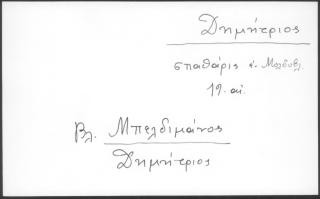 Δημήτριος
σπαθάρις ἡ. Μολδοβλ.
19. αἰ.
Βλ. Μπελδιμάνος
Δημήτριος